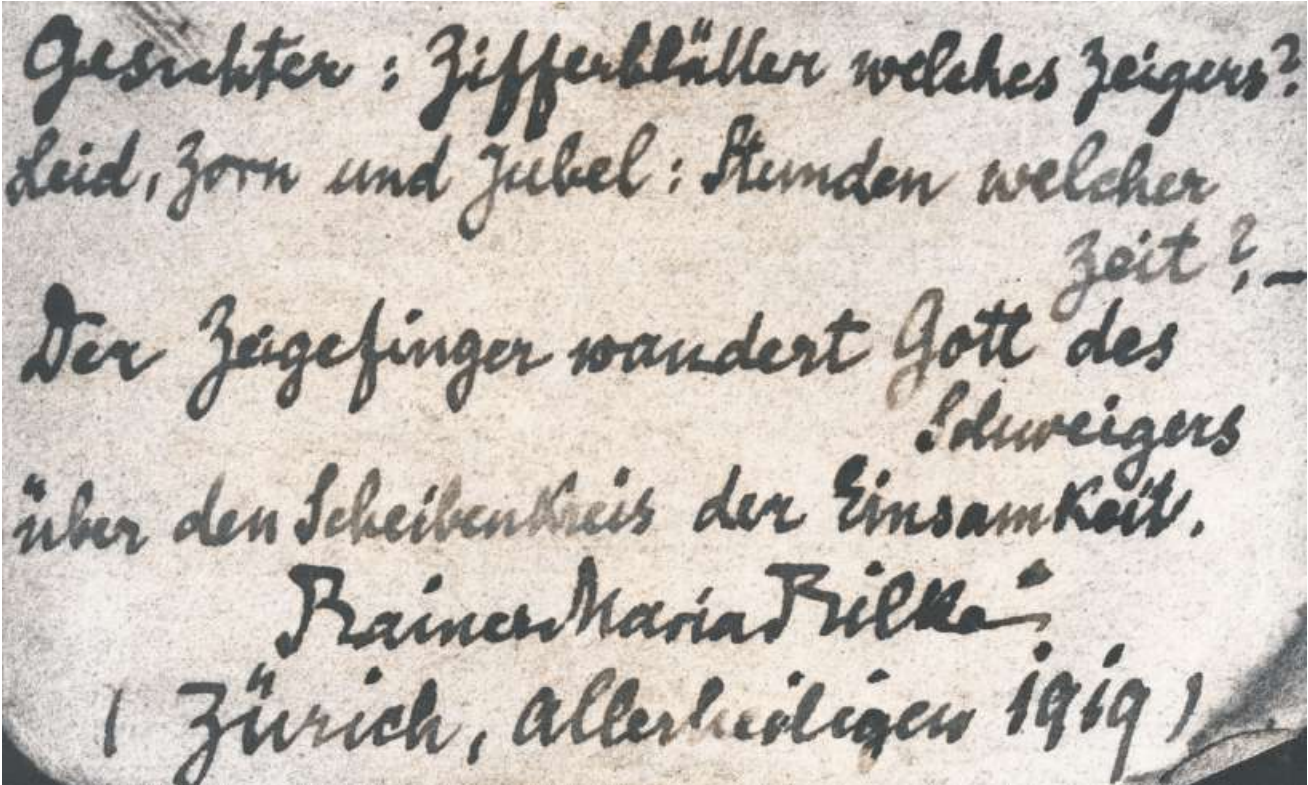 Gesichter : Zifferblätter welches Zeigers?
Leid, Zorn und Jubel : Stunden welcher
Zeit ? –
Der Zeigefinger wandert Gott des
Schweigers
über den Scheibenkreis der Einsamkeit.
Rainer Maria Rilke
( Zürich, Allerheiligen 1919 )